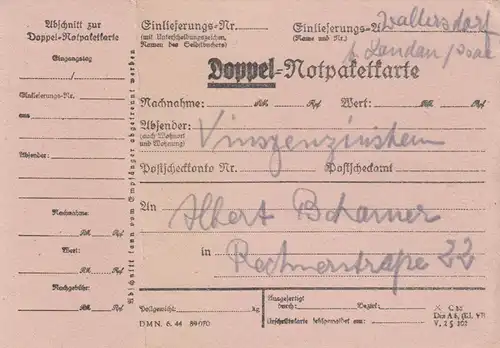 Abschnitt zur
Doppel-Notpaketkarte
Eingangstag
/
Einlieferungs-Nr.
aus
Absender:
Nachnahme:
RM. Rpf
Wert:
RM. Rpf
Nachgebühr:
RM. Rpf
Abschnitt kann vom Empfänger abgetrennt werden
Einlieferungs-Nr.
(mit Unterscheidungszeichen,
Namen des Selbstbuchers)
Einlieferungs-A
(Name und Nr.)
Wallersdorf
b. Landau/Isar
Doppel-Notpaketkarte
Nachnahme: RM. Rpf Wert: RM. Rpf
Absender:
(auch Wohnort
und Wohnung)
Postscheckkonto Nr. Postscheckamt
An Albert
in 22
Postgewicht: kg
DMN. 6. 44 59070
Ausgefertigt
durch: Bezirk:
Unzustellbarkeit gemeldet am
C 85
Din A 6, (Kl. VI)
V, 2 §